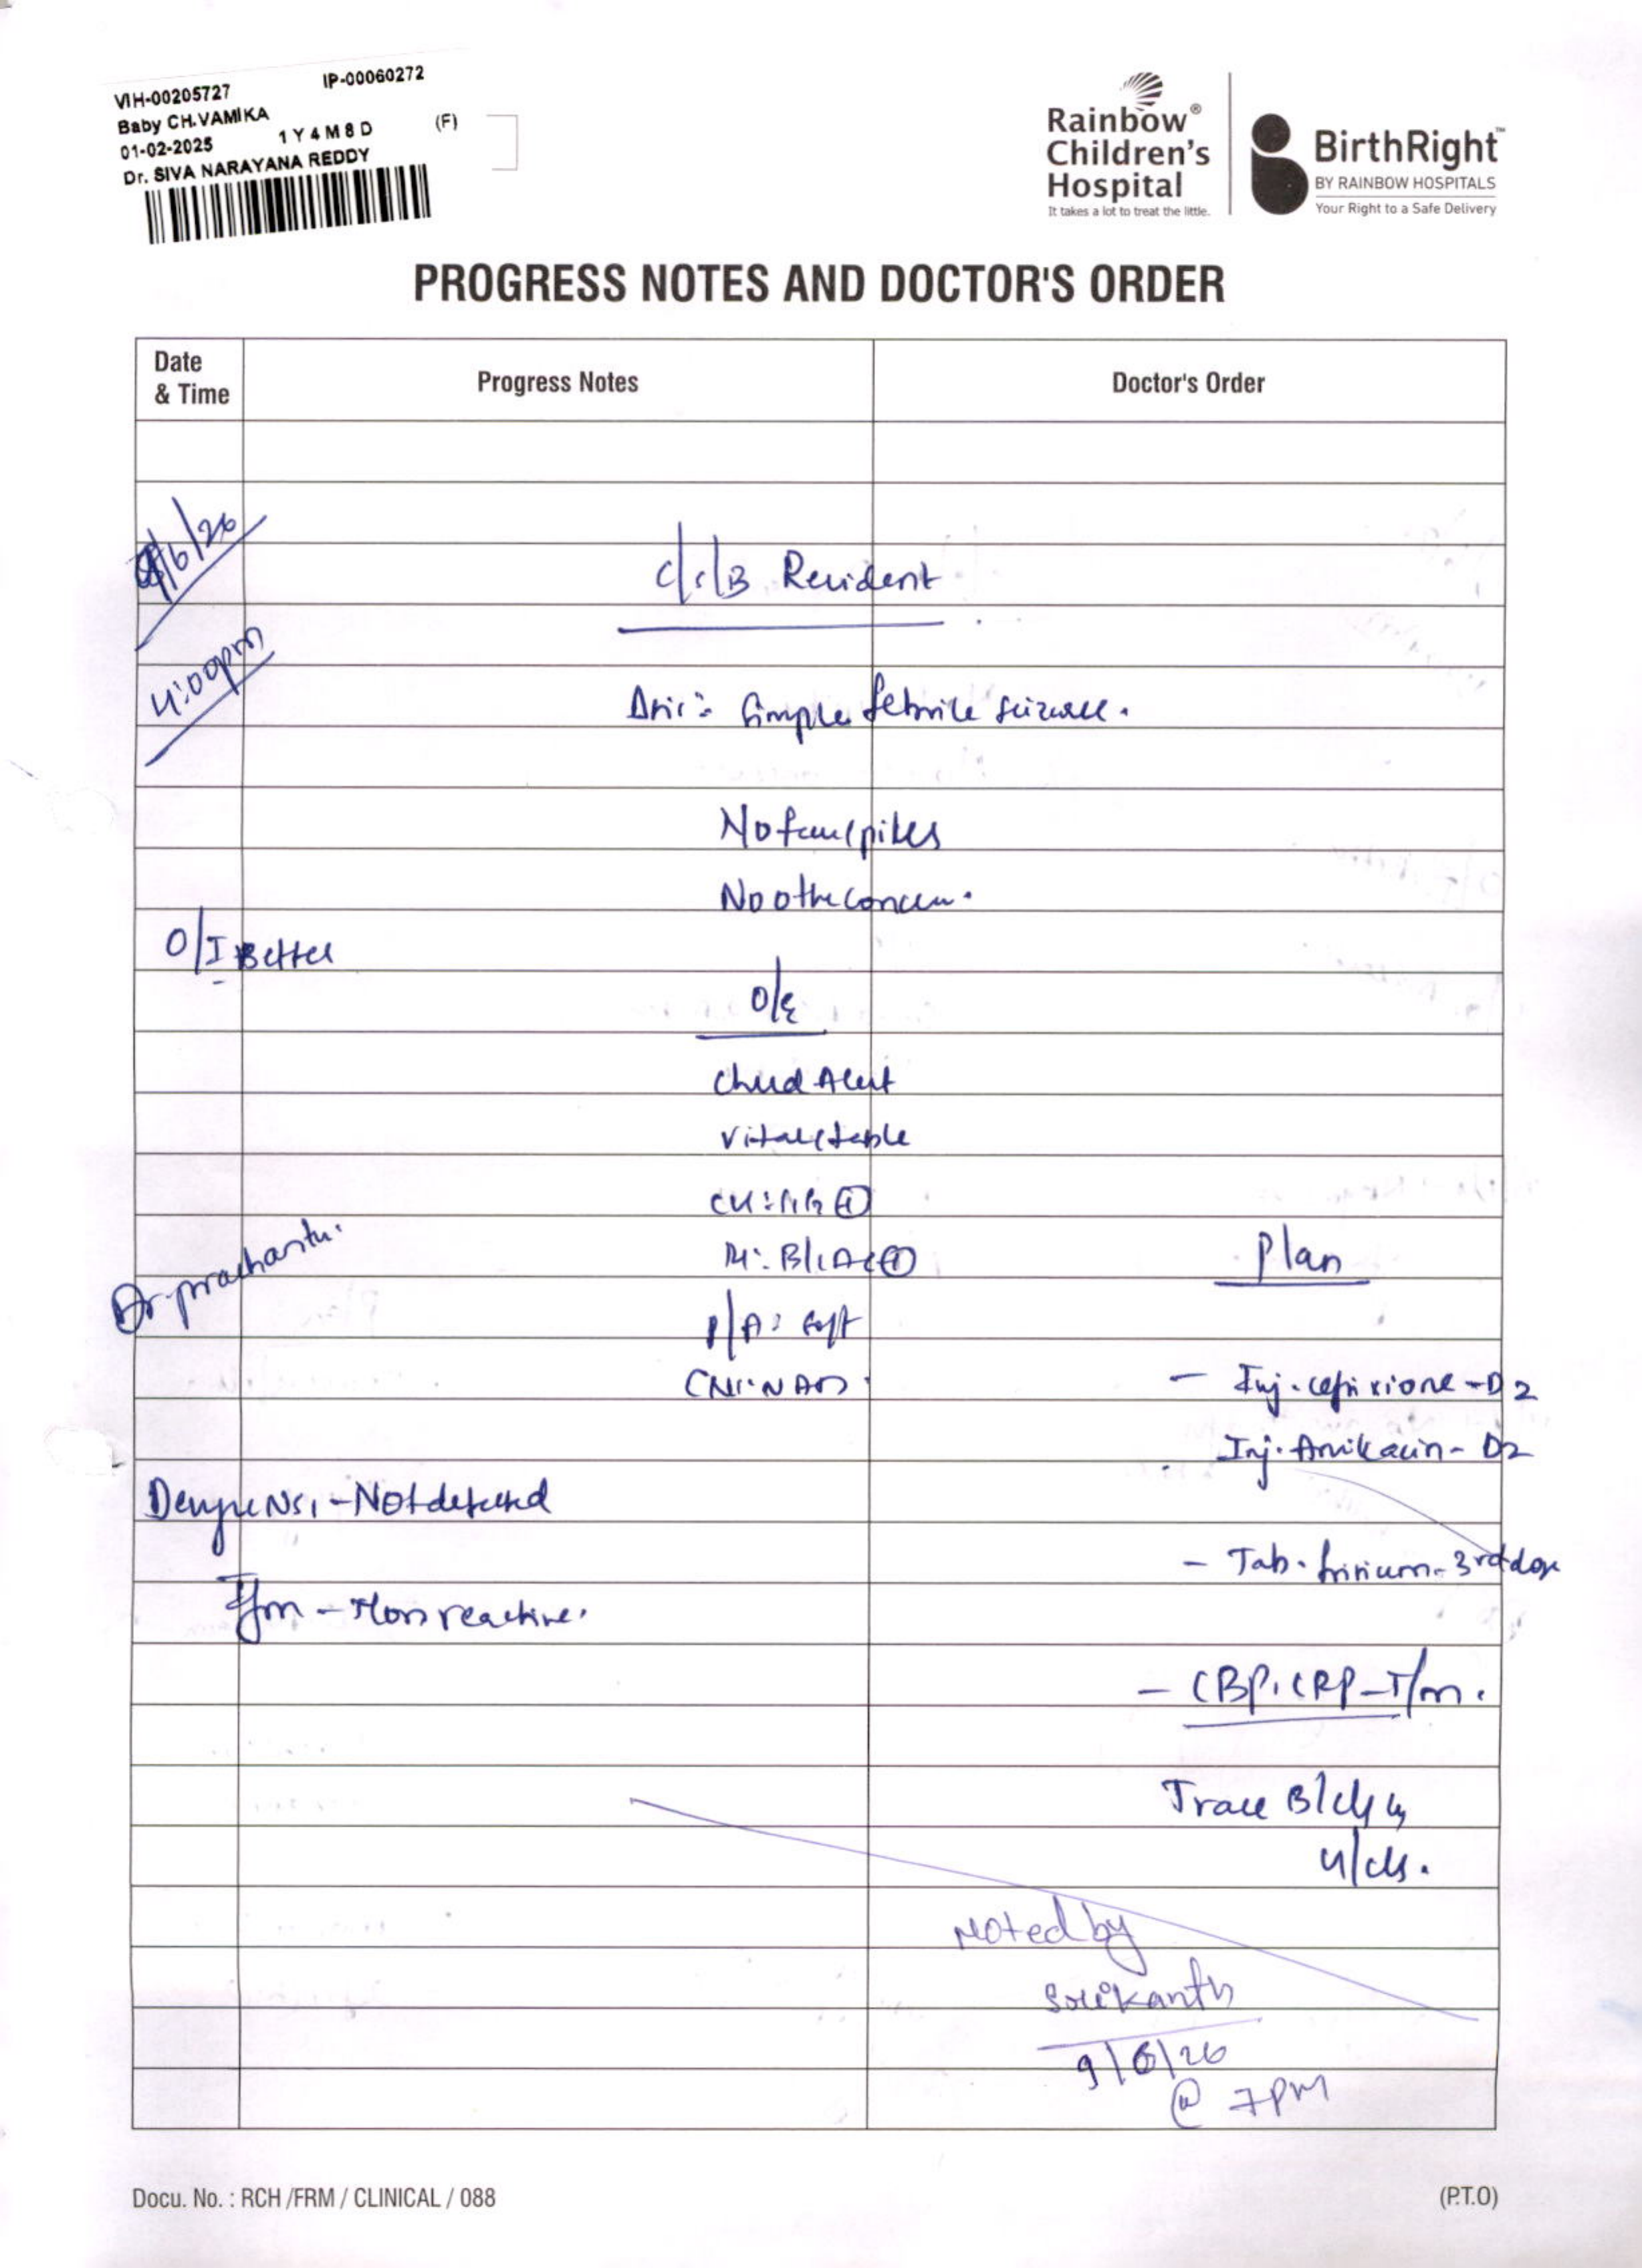 VIH-00205727 IP-00060272
Baby CH.VAMIKA
01-02-2025 1 Y 4 M 8 D (F)
Dr. SIVA NARAYANA REDDY
Rainbow®
Children's
Hospital
It takes a lot to treat the little.
BirthRight™
BY RAINBOW HOSPITALS
Your Right to a Safe Delivery
PROGRESS NOTES AND DOCTOR'S ORDER
Date
& Time
Progress Notes
Doctor's Order
9/6/26
C/S/B Resident
4:00pm
Simple febrile seizure.
No
No othe concern.
O/I Better
O/E
Child Alert
Vitals stable
Dr. prashanth.
Plan
P/A: soft
CNS: NAD.
- Inj. - D2
Inj. Amikacin - D2
Dengue NS1 - Not detected
- Tab. frisium - 3rd dose
IgM - Non reactive.
- CBP, CRP - T/m.
Trace B/c/s
U/c/s.
Noted by
Srikanth
9/6/26
@ 7PM
Docu. No. : RCH /FRM / CLINICAL / 088
(P.T.O)